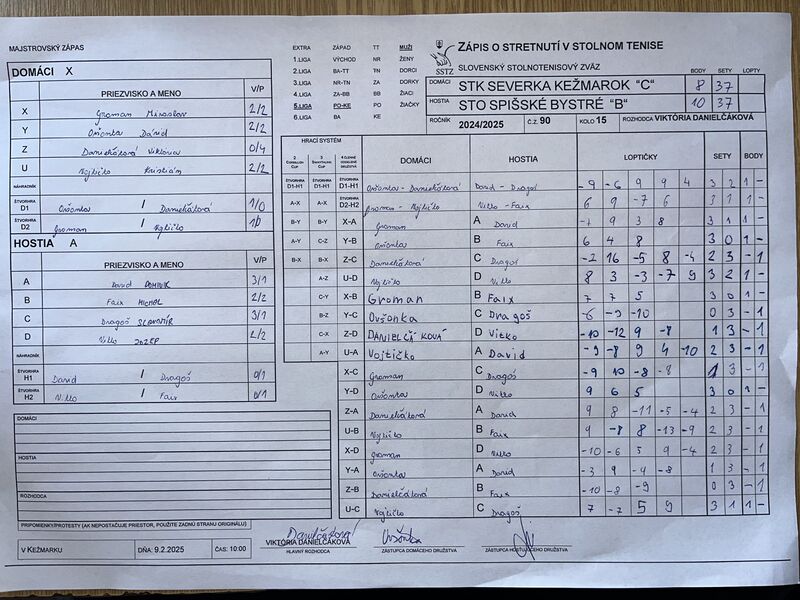 MAJSTROVSKÝ ZÁPAS
DOMÁCI X
PRIEZVISKO A MENO V/P
X Groman Miroslav 2/2
Y Ovšonka Dávid 2/2
Z Danielčáková Viktória 0/4
U Vojtičko Kristián 2/2
NÁHRADNÍK
ŠTVORHRA D1 Ovšonka / Danielčáková 1/0
ŠTVORHRA D2 Groman / Vojtičko 1/0
HOSTIA A
PRIEZVISKO A MENO V/P
A David DOMINIK 3/1
B Faix MICHAL 2/2
C Dragoš SLAVOMÍR 3/1
D Vitko JOZEF 2/2
NÁHRADNÍK
ŠTVORHRA H1 David / Dragoš 0/1
ŠTVORHRA H2 Vitko / Faix 0/1
DOMÁCI
HOSTIA
ROZHODCA
PRIPOMIENKY/PROTESTY (AK NEPOSTAČUJE PRIESTOR, POUŽITE ZADNÚ STRANU ORIGINÁLU)
V KEŽMARKU DŇA: 9.2.2025 ČAS: 10:00
EXTRA ZÁPAD TT MUŽI
1.LIGA VÝCHOD NR ŽENY
2.LIGA BA-TT TN DORCI
3.LIGA NR-TN ZA DORKY
4.LIGA ZA-BB BB ŽIACI
5.LIGA PO-KE PO ŽIAČKY
6.LIGA BA KE
SSTZ
ZÁPIS O STRETNUTÍ V STOLNOM TENISE
SLOVENSKÝ STOLNOTENISOVÝ ZVÄZ
BODY SETY LOPTY
DOMÁCI STK SEVERKA KEŽMAROK "C" 8 37
HOSTIA STO SPIŠSKÉ BYSTRÉ "B" 10 37
ROČNÍK 2024/2025 Č.Z. 90 KOLO 15 ROZHODCA VIKTÓRIA DANIELČÁKOVÁ
HRACÍ SYSTÉM
DOMÁCI HOSTIA LOPTIČKY SETY BODY
ŠTVORHRA D1-H1 ŠTVORHRA D1-H1 ŠTVORHRA D1-H1 Ovšonka - Danielčáková David - Dragoš -9 -6 9 9 4 3 2 1 -
A-X A-X ŠTVORHRA D2-H2 Groman - Vojtičko Vitko - Faix 6 9 -7 6 3 1 1 -
B-Y B-Y X-A Groman A David 9 3 8 3 1 1 -
A-Y C-Z Y-B Ovšonka B Faix 6 4 8 3 0 1 -
B-X B-X Z-C Danielčáková C Dragoš -2 16 -5 8 -4 2 3 - 1
A-Z U-D Vojtičko D Vitko 8 3 -3 -7 9 3 2 1 -
C-Y X-B Groman B Faix 7 7 5 3 0 1 -
B-Z Y-C Ovšonka C Dragoš -6 -9 -10 0 3 - 1
C-X Z-D DANIELČÁKOVÁ D Vitko -10 -12 9 -8 1 3 - 1
A-Y U-A Vojtičko A David -9 -8 9 4 -10 2 3 - 1
X-C Groman C Dragoš -9 10 -8 -8 1 3 - 1
Y-D Ovšonka D Vitko 9 6 5 3 0 1 -
Z-A Danielčáková A David 9 8 -11 -5 -4 2 3 - 1
U-B Vojtičko B Faix 9 -8 8 -13 -9 2 3 - 1
X-D Groman D Vitko -10 -6 5 9 -4 2 3 - 1
Y-A Ovšonka A David -3 9 -4 -8 1 3 - 1
Z-B Danielčáková B Faix -10 -8 -9 0 3 - 1
U-C Vojtičko C Dragoš 7 -7 5 9 3 1 1 -
Danielčáková Ovšonka
VIKTÓRIA DANIELČÁKOVÁ
HLAVNÝ ROZHODCA ZÁSTUPCA DOMÁCEHO DRUŽSTVA ZÁSTUPCA HOSŤUJÚCEHO DRUŽSTVA